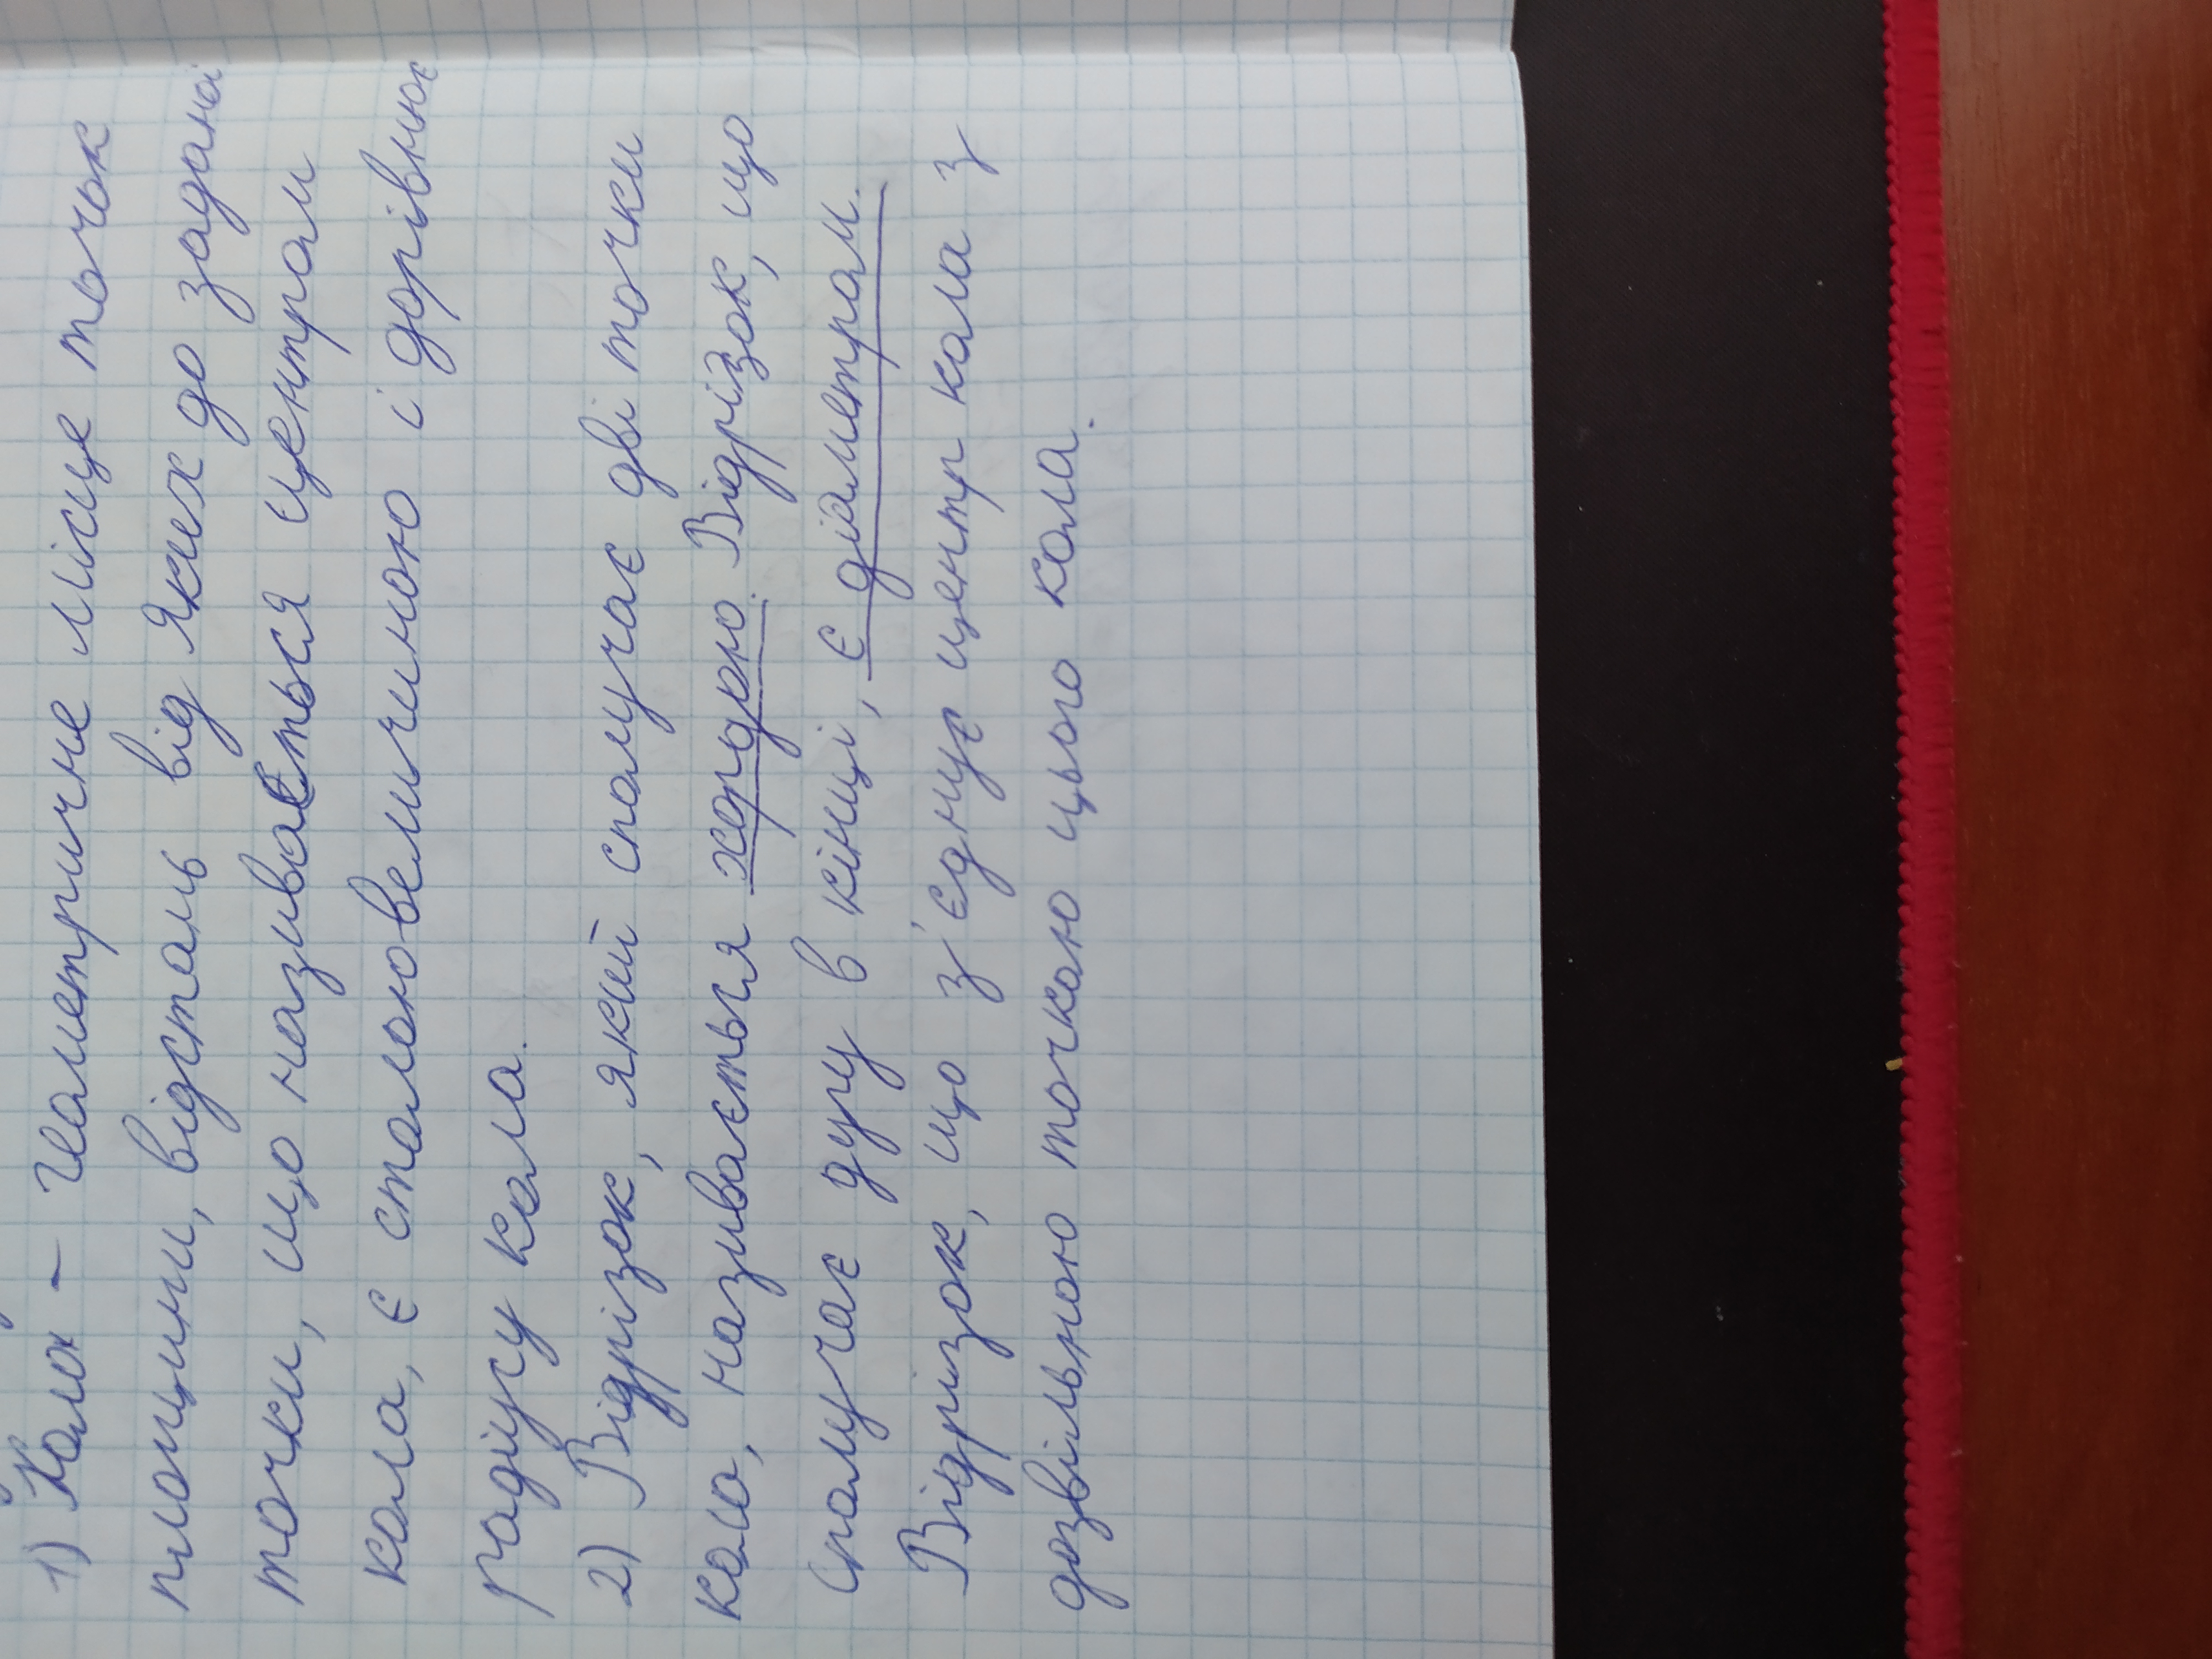 1) Коло - геометричне місце точок
площини, відстань від яких до заданої
точки, що називається центром
кола, є сталоювеличиною і дорівнює
радіусу кола.
2) Відрізок, який сполучає дві точки
кола, називається хордою. Відрізок, що
сполучає дугу в кінці, є діаметром.
Відрізок, що з'єднує центр кола з
довільною точкою цього кола.